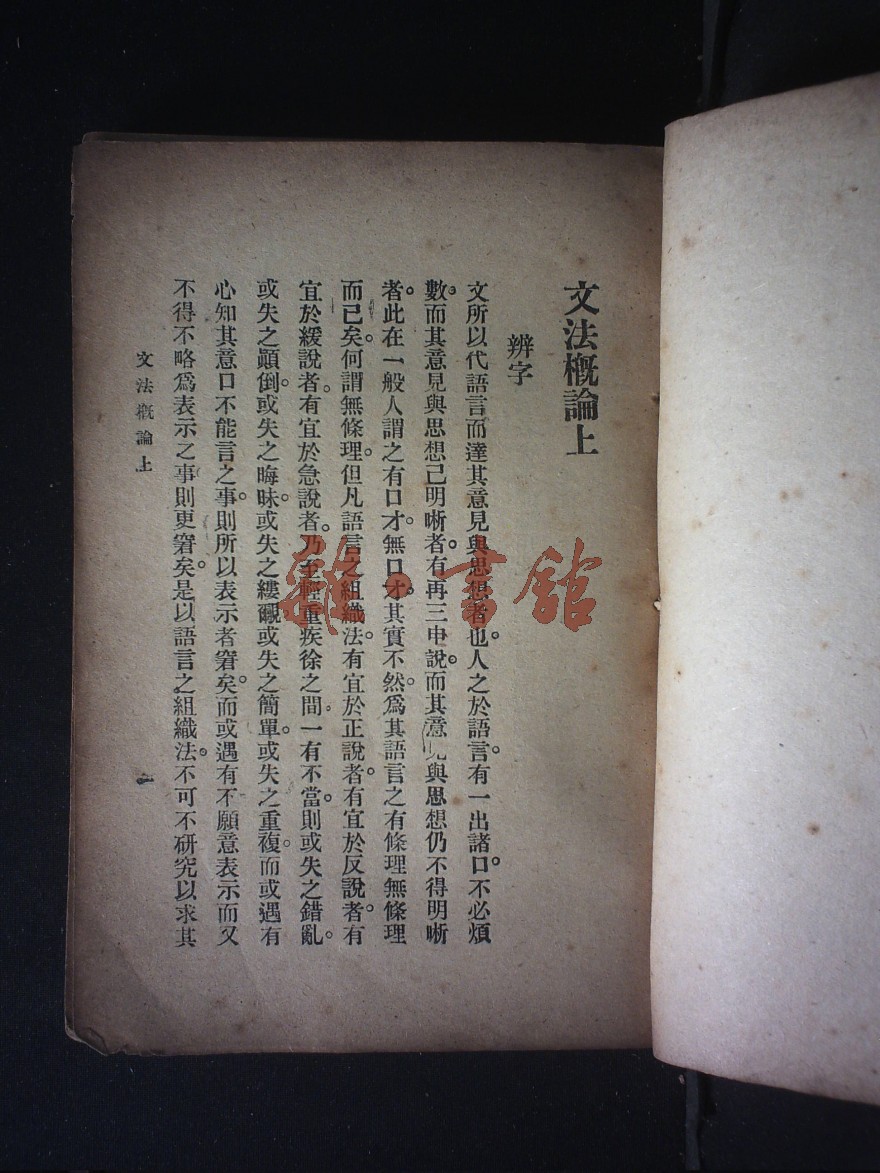 文法概論上
辨字
文所以代語言而達其意見與思想者也。人之於語言。有一出諸口。不必煩
數。而其意見與思想已明晰者。有再三申說。而其意見與思想仍不得明晰
者。此在一般人謂之有口才。無口才。其實不然。爲其語言之有條理無條理
而已矣。何謂無條理。但凡語言之組織法。有宜於正說者。有宜於反說者。有
宜於緩說者。有宜於急說者。乃至輕重疾徐之間。一有不當。則或失之錯亂。
或失之顚倒。或失之晦昧。或失之縷覼。或失之簡單。或失之重複。而或遇有
心知其意口不能言之事。則所以表示者窘矣。而或遇有不願意表示而又
不得不略爲表示之事。則更窘矣。是以語言之組織法。不可不研究以求其
文法概論上
一
雜·書館